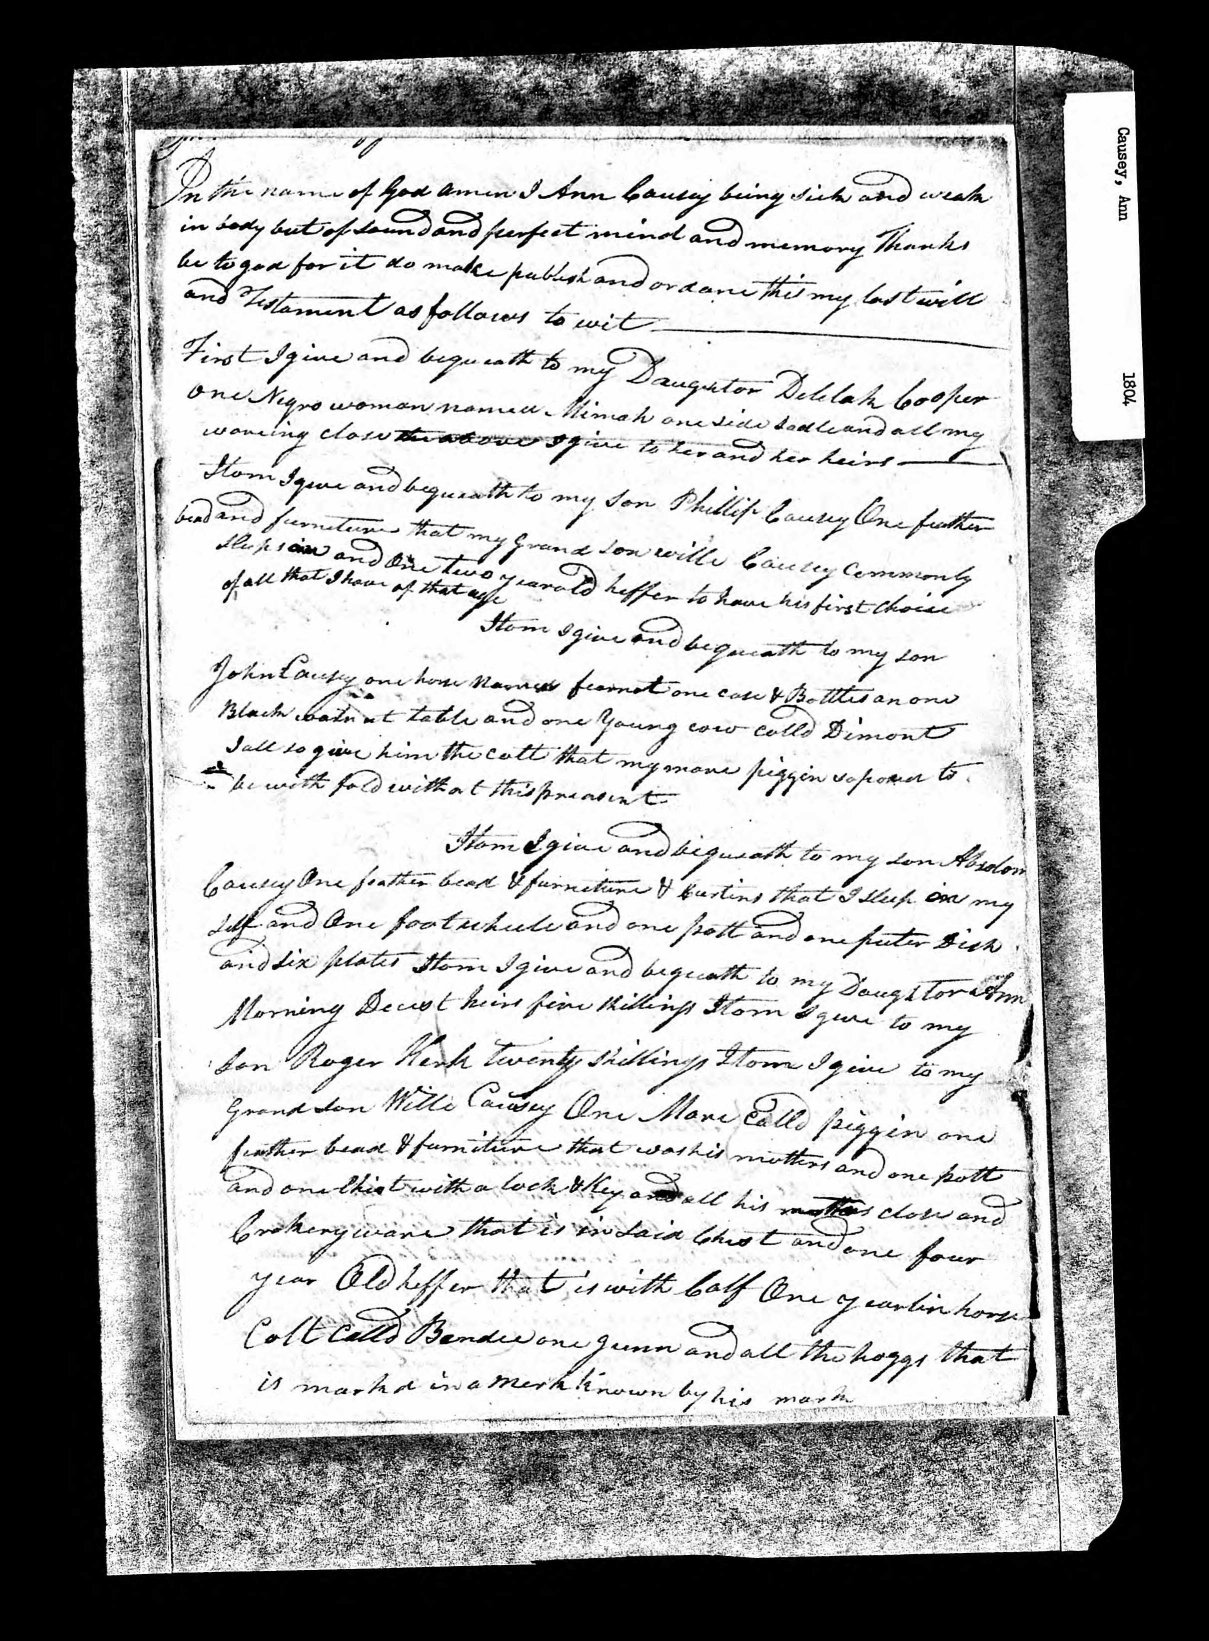 Causey, Ann 1804
In the name of God amen I Ann Causey being sick and weak
in body but of sound and perfect mind and memory Thanks
be to god for it do make publish and ordane this my last will
and Testament as follows to wit
First I give and bequeath to my Daughtor Delilah Cooper
one Negro woman named Mimah one side sadle and all my
wareing close the above I give to her and her heirs
Itom I give and bequeath to my Son Phillip Causey One feather
bead and furneture that my grand son wille Causey Commonly
sleeps in and One two year old heffer to have his first Choise
of all that I have of that age
Itom I give and bequeath to my son
John Causey one horse Named fearnot one case & Bottles an one
Black walnut table and one Young cow calld Dimont
I all so give him the colt that my mare piggin soposed to
be with fold with at this preasent
Itom I give and bequeath to my son Absolom
Causey One feather bead & furneture & Curtins that I sleep in my
self and One foot wheele and one pott and one puter Dish
and six plates Itom I give and bequeath to my Daughtor Ann
Morning Decest heirs five shillings Itom I give to my
Son Roger Kerk twenty shillings Itom I give to my
Grand son Wille Causey One Mare Calld piggin one
feather bead & furniture that was his mothers and one pott
and one Chist with a lock & Key and all his mothers close and
Crokery ware that is in said Chest and one four
year Old heffer that is with Calf One yearlin horse
Colt Calld Bandee one gunn and all the hoggs that
is markd in a merk known by his mark